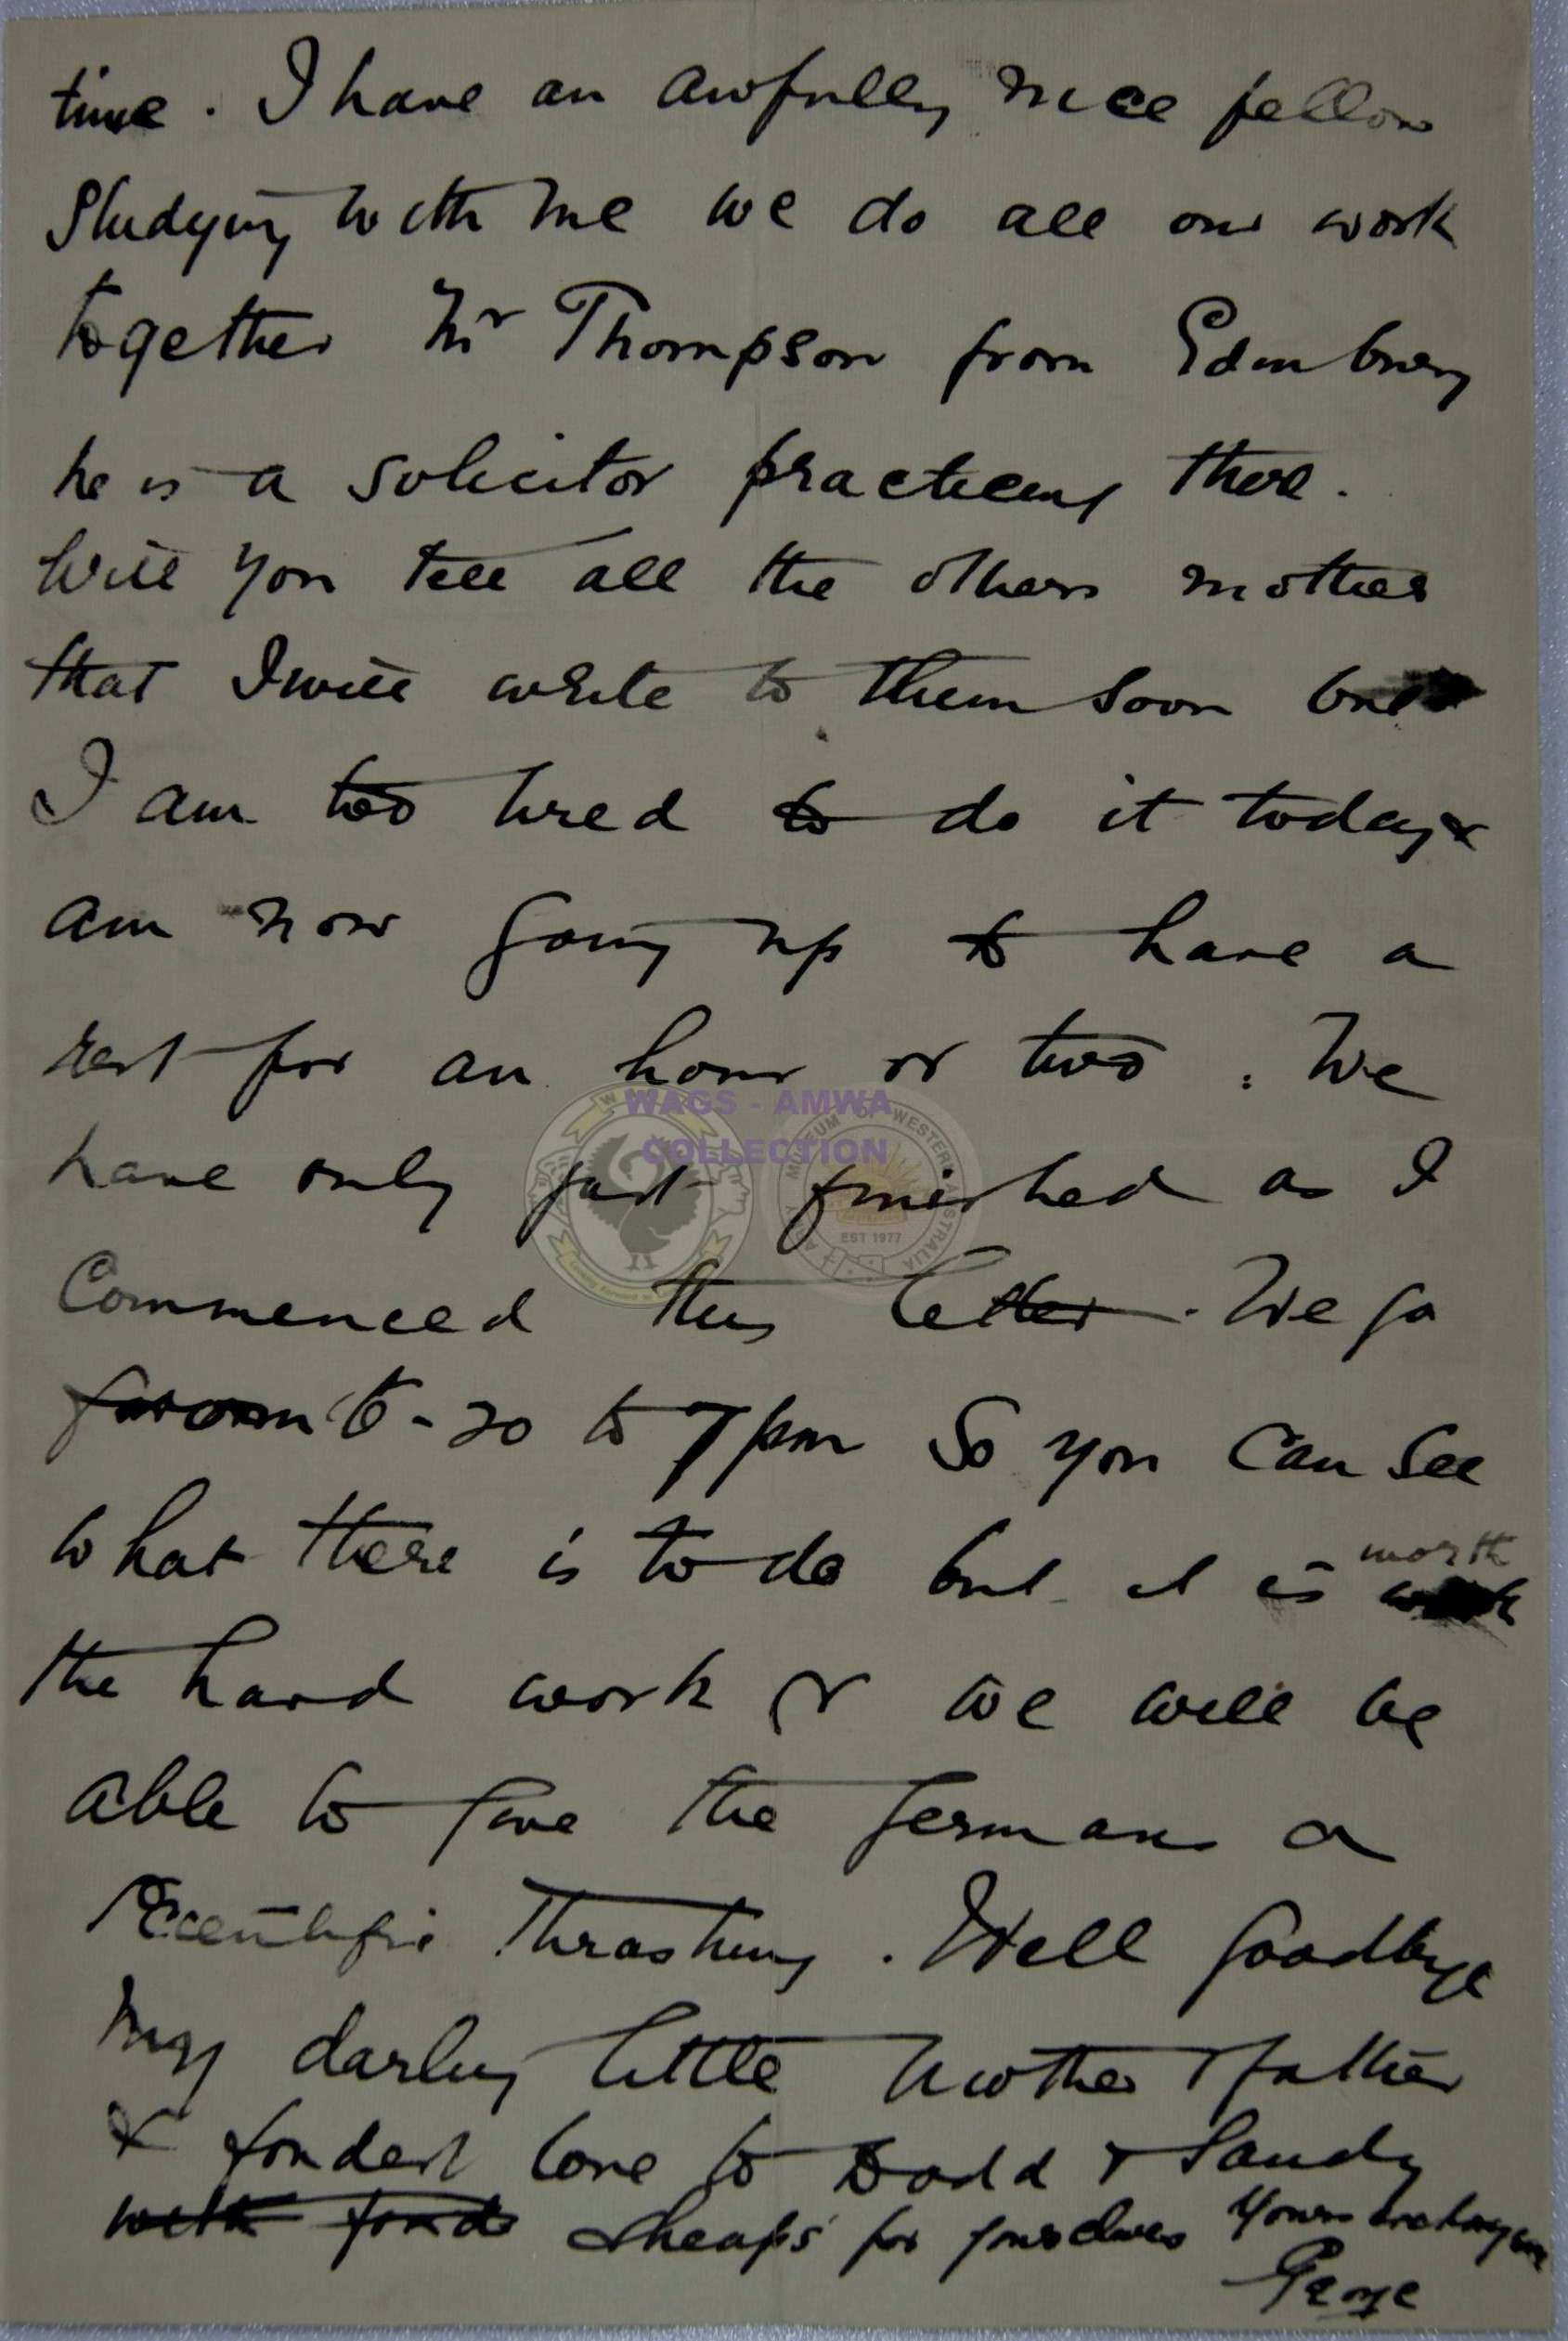 time. I have an awfully nice fellow
studying with me we do all our work
together Mr Thompson from Edinburg
he is a solicitor practicing there.
Will you tell all the others mother
that I will write to them soon but
I am too tired to do it today &
am now going up to have a
rest for an hour or two. We
have only just finished as I
Commenced this letter. We go
from 6-20 to 7pm So you can see
what there is to do but it is worth
the hard work & we will be
able to give the germans a
scentific thrashing. Well goodbye
my darling little mother & father
& fondest love to Dodd & Sandy
with fond sheaps for yourselves Yours
George
WAGS - AMWA
COLLECTION
EST 1977